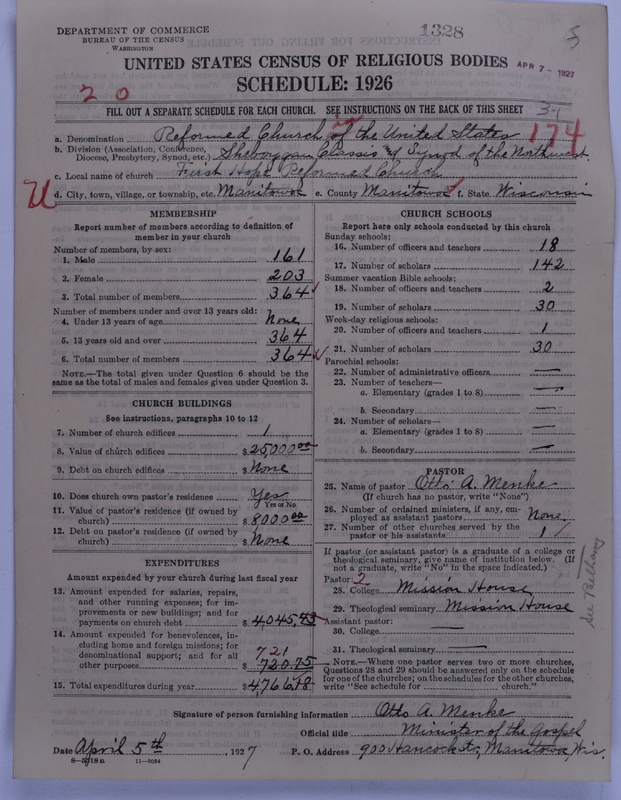 DEPARTMENT OF COMMERCE
BUREAU OF THE CENSUS
WASHINGTON
1328
5
UNITED STATES CENSUS OF RELIGIOUS BODIES
APR 7 - 1927
SCHEDULE: 1926
2 0
FILL OUT A SEPARATE SCHEDULE FOR EACH CHURCH. SEE INSTRUCTIONS ON THE BACK OF THIS SHEET
a. Denomination Reformed Church of the United States 174
b. Division (Association, Conference, Diocese, Presbytery, Synod, etc.) Sheboygan Classis of Synod of the Northwest
c. Local name of church First Hope Reformed Church
d. City, town, village, or township, etc. Manitowoc e. County Manitowoc f. State Wisconsin
MEMBERSHIP
Report number of members according to definition of member in your church
Number of members, by sex:
1. Male 161
2. Female 203
3. Total number of members 364
Number of members under and over 13 years old:
4. Under 13 years of age None
5. 13 years old and over 364
6. Total number of members 364
NOTE.—The total given under Question 6 should be the same as the total of males and females given under Question 3.
CHURCH BUILDINGS
See instructions, paragraphs 10 to 12
7. Number of church edifices 1
8. Value of church edifices $25,000.00
9. Debt on church edifices $None
10. Does church own pastor's residence Yes
Yes or No
11. Value of pastor's residence (if owned by church) $8000.00
12. Debt on pastor's residence (if owned by church) $None
EXPENDITURES
Amount expended by your church during last fiscal year
13. Amount expended for salaries, repairs, and other running expenses; for improvements or new buildings; and for payments on church debt $4,045,43
14. Amount expended for benevolences, including home and foreign missions; for denominational support; and for all other purposes $720.75
721
15. Total expenditures during year $4,766,18
CHURCH SCHOOLS
Report here only schools conducted by this church
Sunday schools:
16. Number of officers and teachers 18
17. Number of scholars 142
Summer vacation Bible schools:
18. Number of officers and teachers 2
19. Number of scholars 30
Week-day religious schools:
20. Number of officers and teachers 1
21. Number of scholars 30
Parochial schools:
22. Number of administrative officers —
23. Number of teachers—
a. Elementary (grades 1 to 8) —
b. Secondary —
24. Number of scholars—
a. Elementary (grades 1 to 8) —
b. Secondary —
PASTOR
25. Name of pastor Otto A. Menke
(If church has no pastor, write "None")
26. Number of ordained ministers, if any, employed as assistant pastors None
27. Number of other churches served by the pastor or his assistants 1
If pastor (or assistant pastor) is a graduate of a college or theological seminary, give name of institution below. (If not a graduate, write "No" in the space indicated.)
Pastor: 2
28. College Mission House
29. Theological seminary Mission House
Assistant pastor:
30. College —
31. Theological seminary —
NOTE.—Where one pastor serves two or more churches, Questions 28 and 29 should be answered only on the schedule for one of the churches; on the schedules for the other churches, write "See schedule for church."
See Bethany
Signature of person furnishing information Otto A. Menke
Official title Minister of the Gospel
Date April 5th, 1927 P. O. Address 900 Hancock St, Manitowoc, Wis.
11—9054